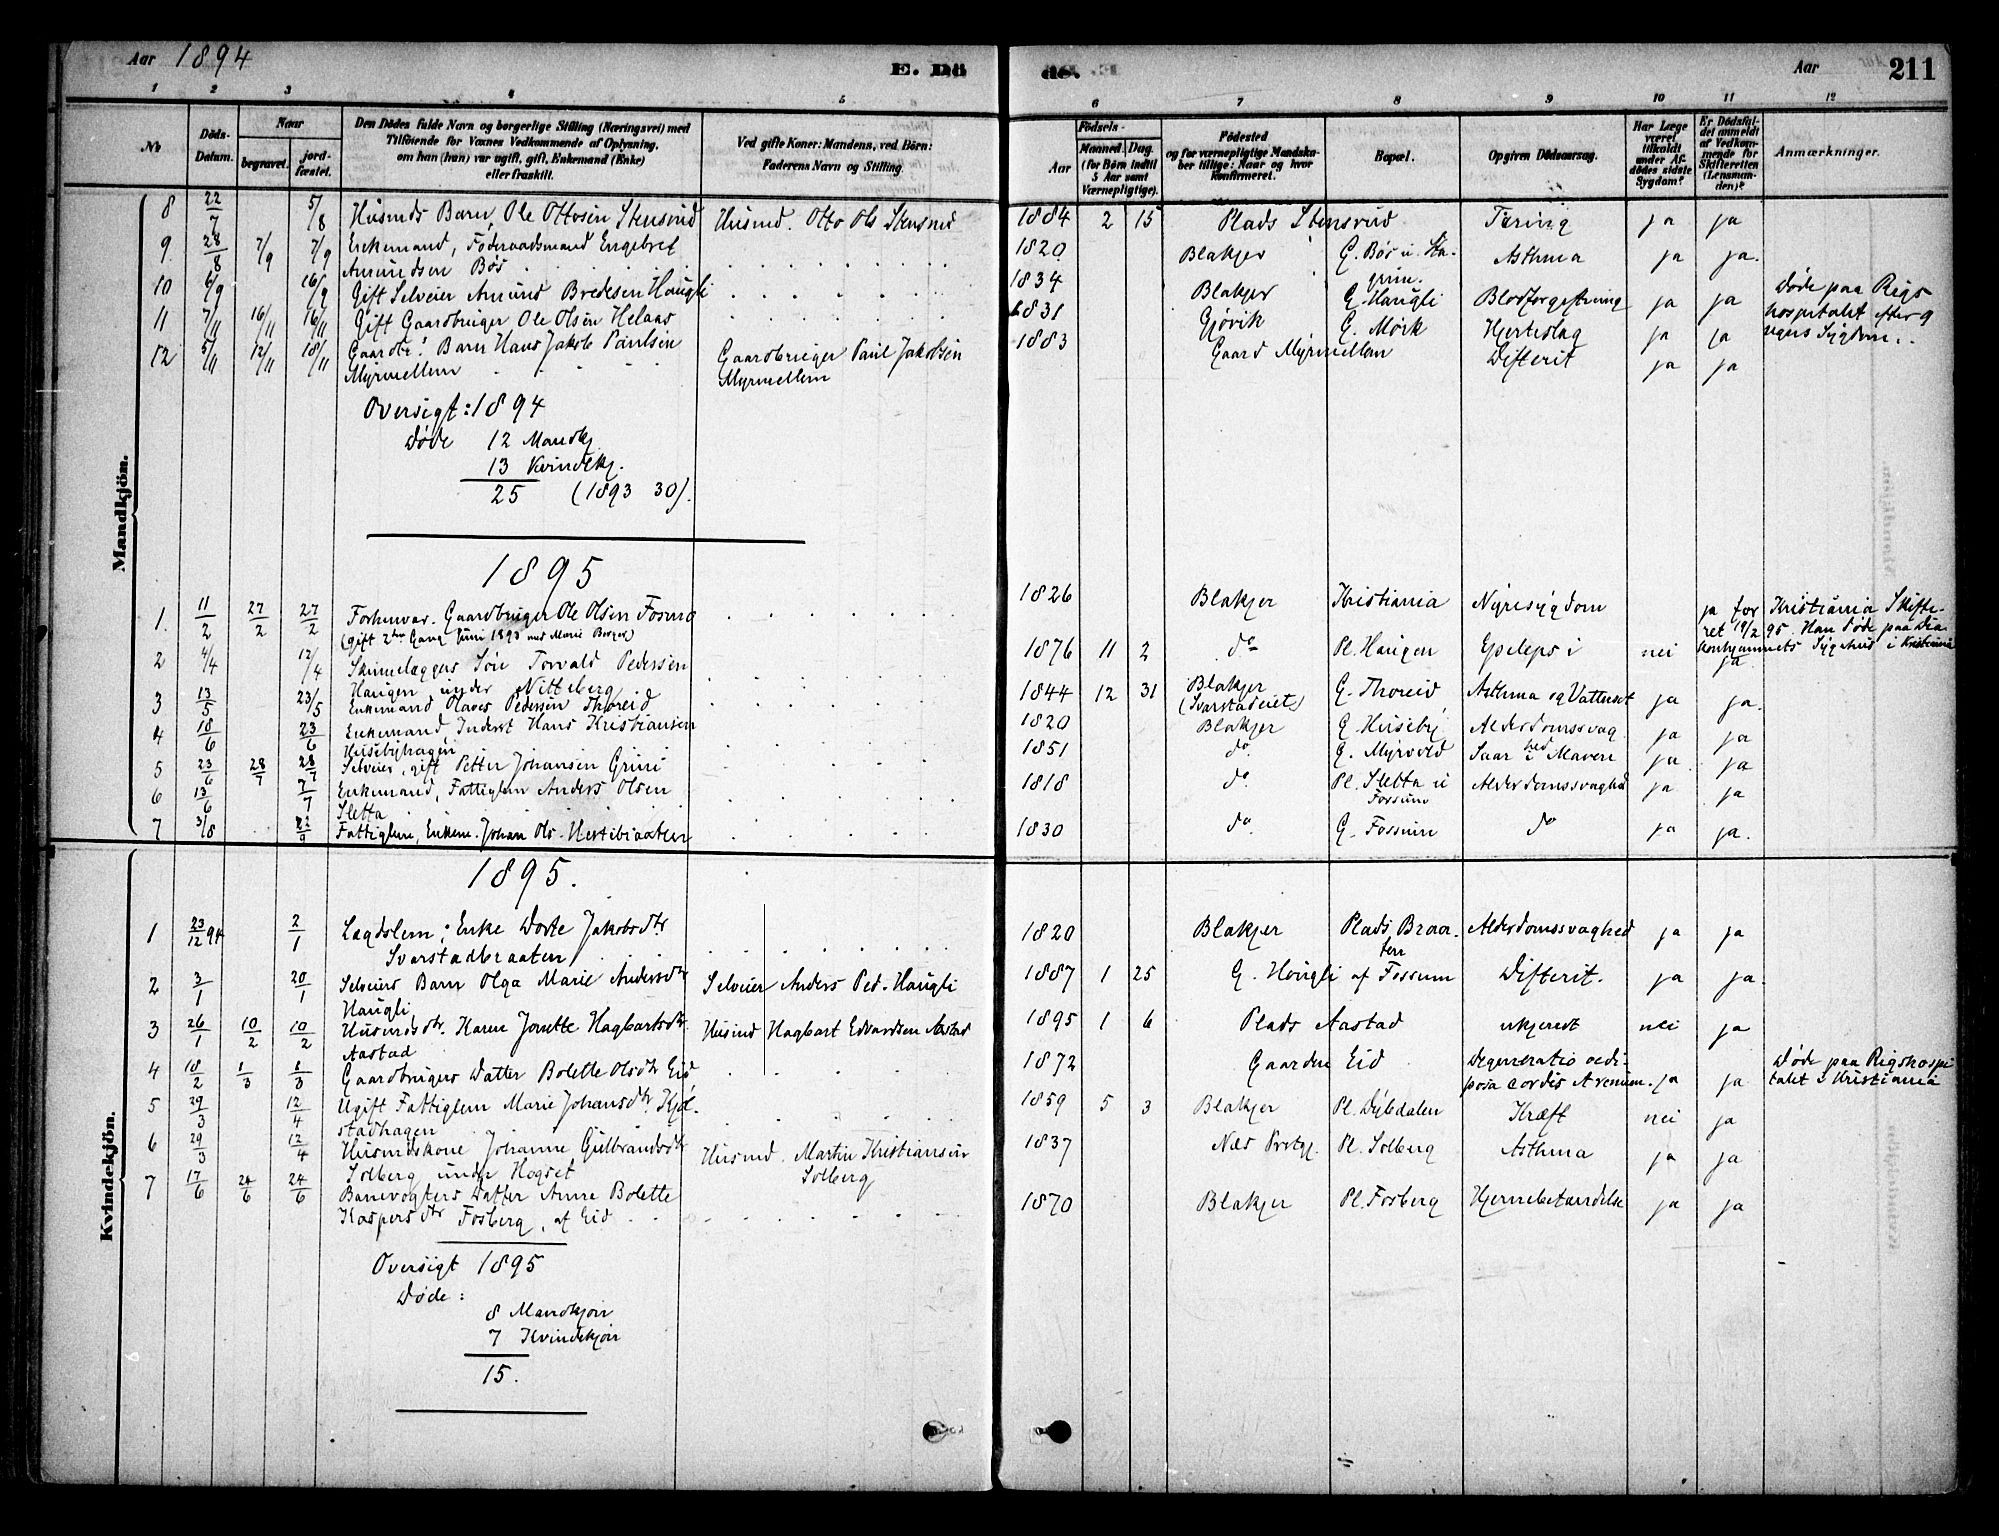 Aar 1894
E. Dö
de.
Aar
211
1 2 3 4 5 6 7 8 9 10 11 12
No
Döds-
Datum.
Naar
begravet.
jord-
fæstet.
Den Dödes fulde Navn og borgerlige Stilling (Næringsvei) med
Tilföiende for Voxnes Vedkommende af Oplysning,
om han (hun) var ugift, gift, Enkemand (Enke)
eller fraskilt.
Ved gifte Koner: Mandens, ved Börn:
Faderens Navn og Stilling.
Födsels-
Aar
Maaned. Dag.
(for Börn indtil
5 Aar samt
Værnepligtige).
Födested
og for værnepligtige Mandska-
ber tillige: Naar og hvor
konfirmeret.
Bopæl.
Opgiven Dödsaarsag.
Har Læge
været
tilkaldt
under Af-
dödes sidste
Sygdom?
Er Dödsfal-
det anmeldt
af Vedkom-
mende for
Skifteretten
(Lensman-
den)?
Anmærkninger.
Mandkjön.
8 22/7 5/8 Husmds Barn, Ole Ottosen Stensrud Husmd. Otto Ols Stensrud 1884 2 15 Plads Stensrud Tæring ja ja
9 28/8 7/9 7/9 Enkemand, Föderaadsmand Engebret 1820 Blakjer G. Bös u. Ha- Asthma ja ja.
Amundsen Bös
10 6/9 16/9 Gift Selveier Amund Bredesen Haugli 1834 Blakjer G. Haugli Blodforgiftning ja ja Døde paa Rigs
hospitalet efter 9
ugers Sygdom.
11 7/11 16/11 16/11 Gift Gaardbruger Ole Olsen Helaas 1831 Gjøvik G. Mørk Hjerteslag ja ja
12 5/11 12/11 18/11 Gaardbr.s Barn Hans Jakob Paulsen Gaardbruger Paul Jakobsen 1883 Gaard Myrmellem Difterit ja ja
Myrmellem Myrmellem
Oversigt: 1894
Døde 12 Mandkj
13 Kvindekj.
25 (1893 30).
1895
1. 11/2 27/2 27/2 Forhenvær. Gaardbruger Ole Olsen Fosmo 1826 Blakjer Kristiania Nyresygdom ja for Kristiania Skifte-
(gift 2den Gang Juni 1893 med Marie Berger) ret 19/2 95. Han døde paa Dia-
konhjemmets Sygehus i Kristiania
2 4/4 12/4 Skinnelæggers Søn Torvald Pedersen 1876 11 2 do Pl. Haugen Epelepsi nei ja
Haugen under Nitteberg
3 13/5 23/5 Enkemand Olaves Pedersen Thoreid 1844 12 31 Blakjer G. Thoreid Asthma og Vattersot ja ja.
(Svarstadeiet)
4 18/6 23/6 Enkemand Inderst Hans Kristiansen 1820 Blakjer G. Huseby Alderdomssvag ja ja
Husebyhagen hed
5 23/6 28/7 28/7 Selveier, gift Petter Johansen Grini 1851 do G. Myrvold Saar i Maven ja ja
6 13/6 7/7 Enkemand, Fattiglem Anders Olsen 1818 do Pl. Sletta u Alderdomssvaghed ja ja
Sletta Fossum
7 3/8 22/9 Fattiglem, Enkem. Johan Ols. 1830 do G. Fossum do ja ja.
Kvindekjön.
1895.
1 23/12 94 2/1 Lægdslem, Enke Dorte Jakobsdtr 1820 Blakjer Plads Braa- Alderdomssvaghed ja ja
Svarstadbraaten ten
2 3/1 20/1 Selveiers Barn Olga Marie Andersdtr Selveier Anders Ped. Haugli 1887 1 25 G. Haugli af Fossum Difterit. ja ja.
Haugli
3 26/1 10/2 10/2 Husmdsdtr. Karen Jonette Hagbartsdtr. Husmd Hagbart Edvardsen Aastad 1895 1 6 Plads Aastad ukjendt nei ja
Aastad
4 18/2 8/3 8/3 Gaardbrugers Datter Bolette Olsdtr Eid 1872 Gaarden Eid Degeneratio adi- Døde paa Rigshospi
posa cordis ja ja talet i Kristiania
5 29/3 12/4 Ugift Fattiglem Marie Johansdtr. Kjøl- 1859 5 3 Blakjer Pl. Dybdalen Kræft nei ja
stadhagen
6 29/3 12/4 Husmdskone Johanne Gulbrandsdtr Husmd. Martin Kristiansen 1837 Næs Prstgj. Pl. Solberg Asthma ja ja
Solberg under Hogset Solberg
7 17/6 24/6 24/6 Banevogters Datter Anne Bolette 1870 Blakjer Pl. Fosberg Hjernebetændelse ja ja
Kaspersdtr Fosberg, af Eid
Oversigt 1895
Døde:
8 Mandkjøn
7 Kvindekjøn
15.